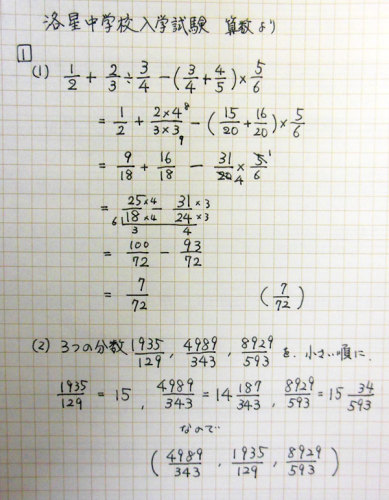 洛星中学校入学試験 算数より
1
(1) 1/2 + 2/3 ÷ 3/4 - (3/4 + 4/5) × 5/6
= 1/2 + 2×4 8/3×3 9 - (15/20 + 16/20) × 5/6
= 9/18 + 16/18 - 31/20 4 × 5 1/6
= 25×4/18×4 - 31×3/24×3
6 3 4
= 100/72 - 93/72
= 7/72 (7/72)
(2) 3つの分数 1935/129 , 4989/343 , 8929/593 を、小さい順に、
1935/129 = 15 , 4989/343 = 14 187/343 , 8929/593 = 15 34/593
なので
(4989/343 , 1935/129 , 8929/593)